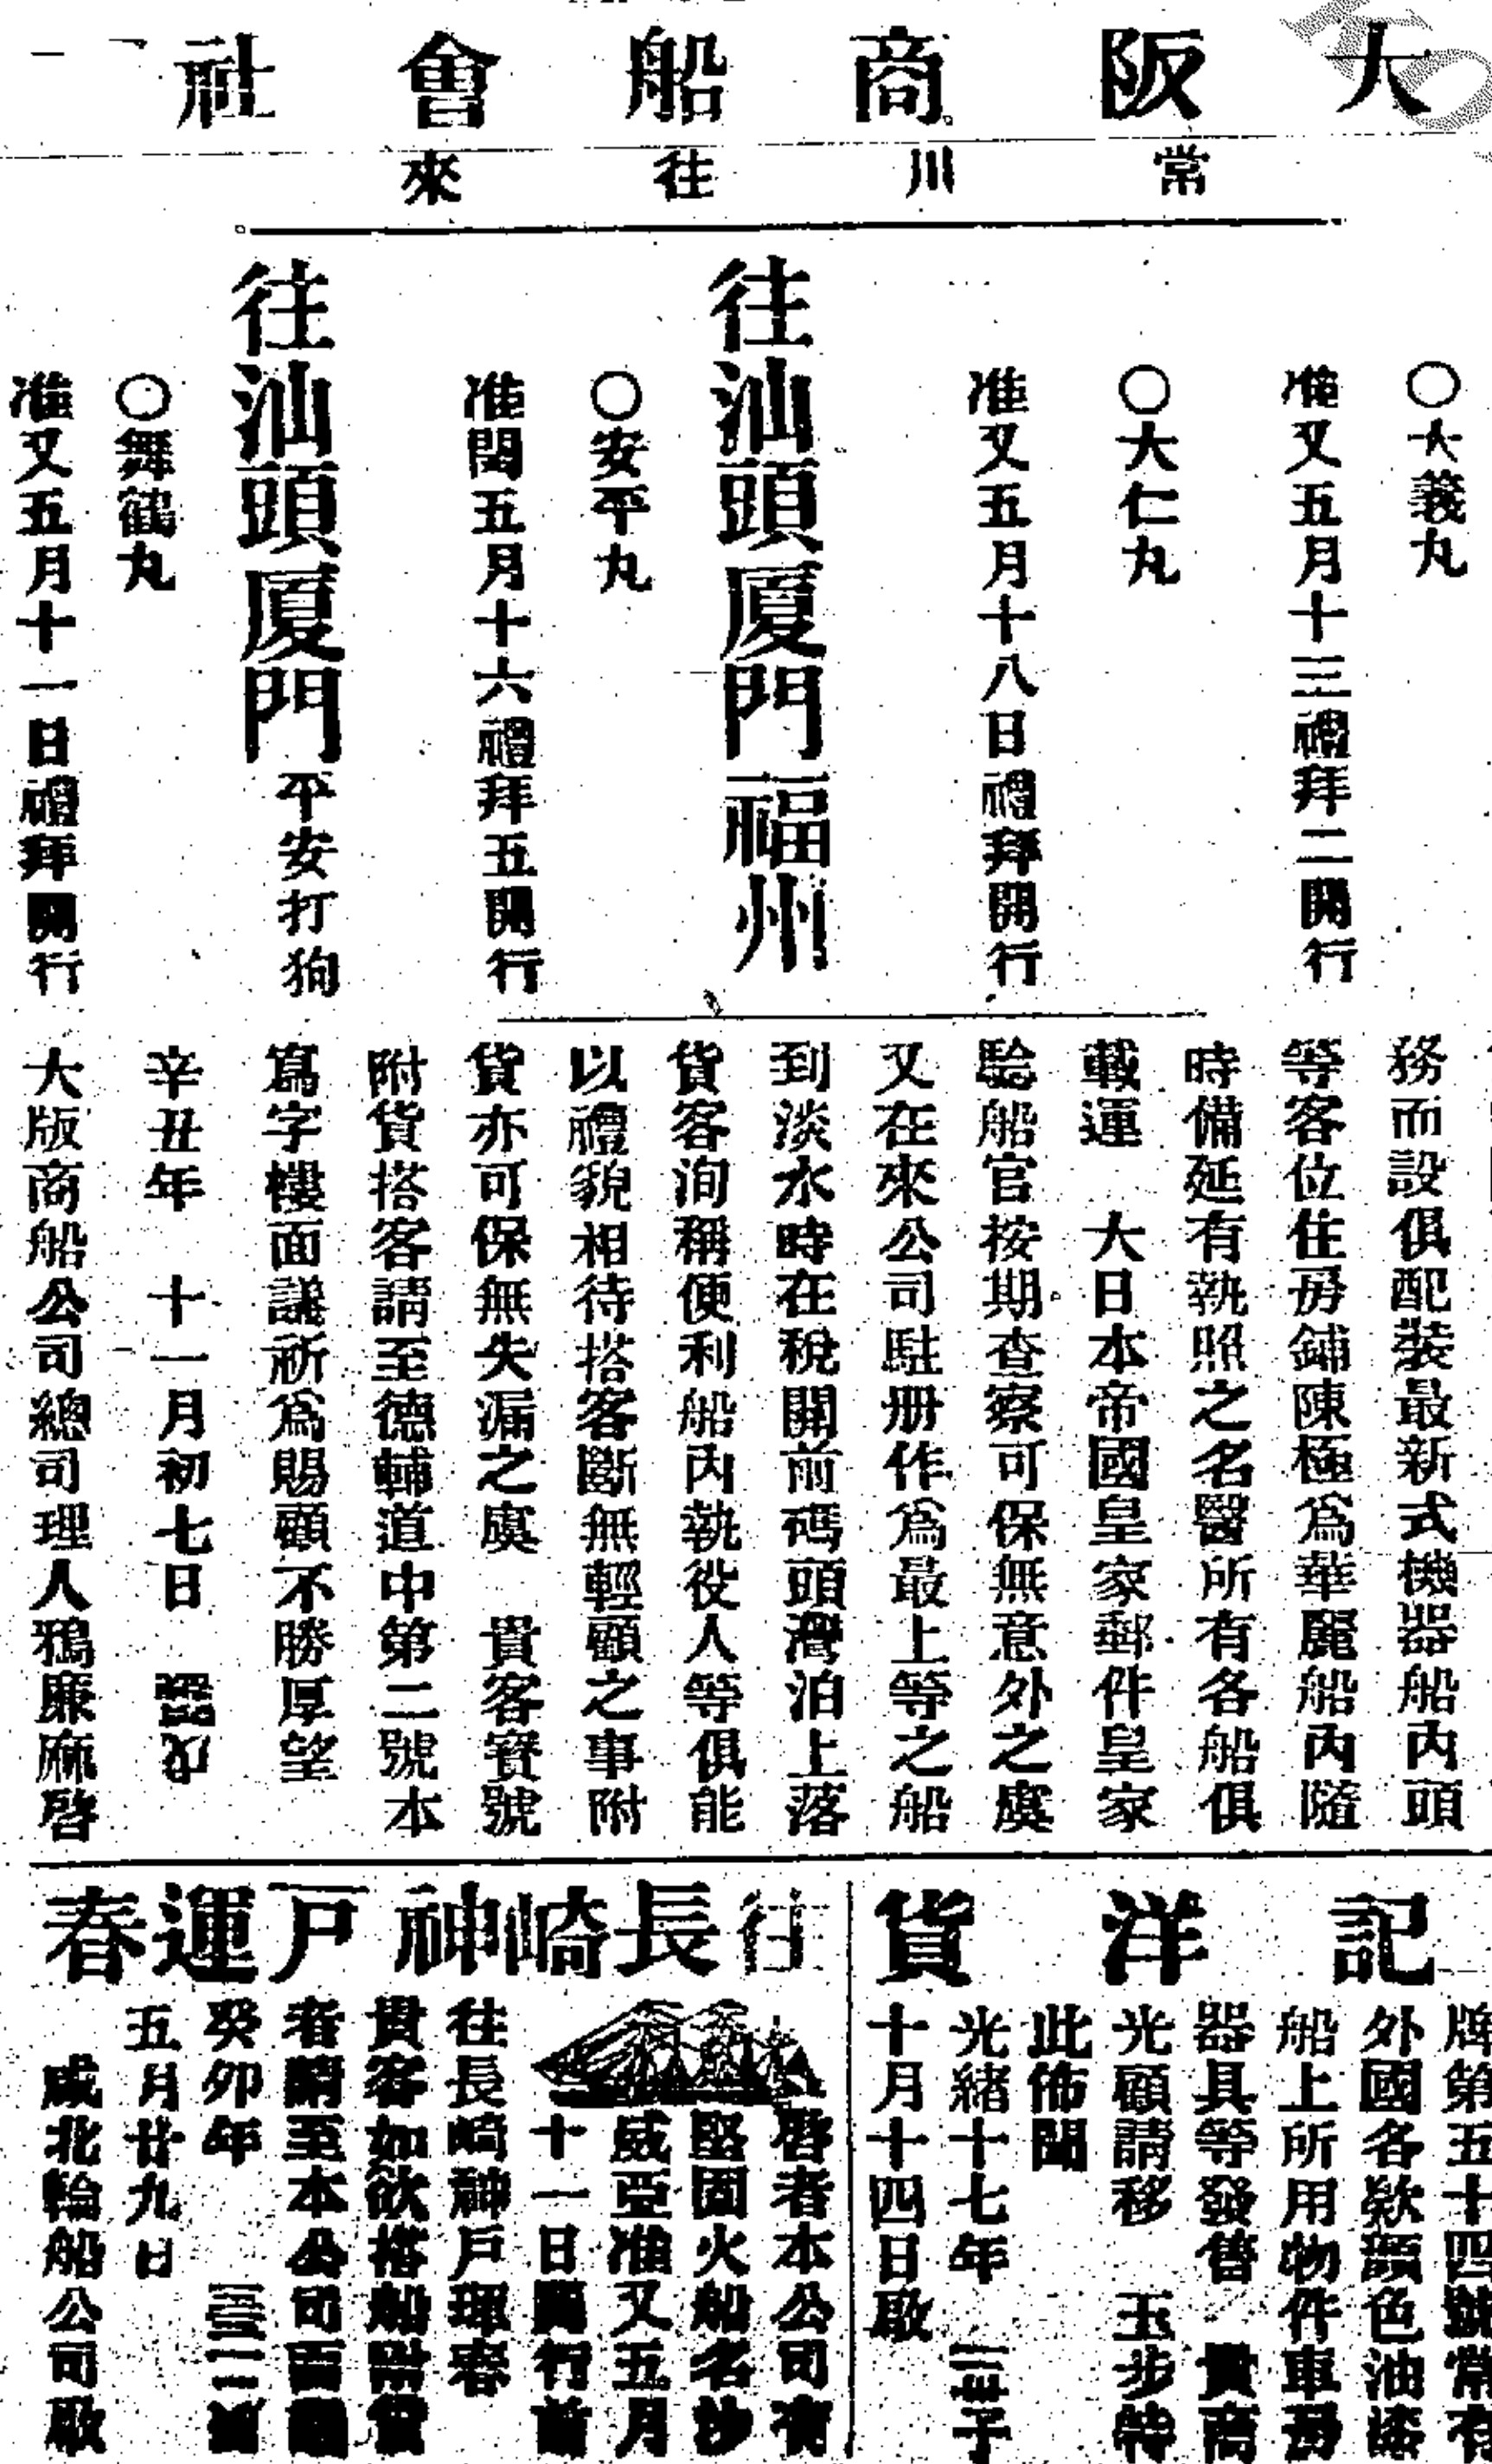 大阪商船會社
常川往來
〇大義丸
准又五月十三禮拜二開行
〇大仁丸
准又五月十八日禮拜開行
往汕頭厦門福州
〇安平丸
准閏五月十六禮拜五開行
往汕頭厦門平安打狗
〇舞鶴丸
准又五月十一日禮拜開行
務而設俱配裝最新式機器船內頭
等客位住房鋪陳極爲華麗船內隨
時備延有執照之名醫所有各船俱
載運 大日本帝國皇家郵件皇家
驗船官按期查察可保無意外之虞
又在來公司駐册作爲最上等之船
到淡水時在稅關前碼頭灣泊上落
貨客洵稱便利船內執役人等俱能
以禮貌相待搭客斷無輕顧之事附
貨亦可保無失漏之虞 貴客寶號
附貨搭客請至德輔道中第二號本
寫字樓面議祈爲賜顧不勝厚望
辛丑年 十一月初七日
大版商船公司總司理人鴉廉麻啓
記洋貨
牌第五十四號常有
外國名欵顏色油漆
船上所用物件車房
器具等發售 貴商
光顧請移 玉步特
此佈聞
光緒十七年
十月十四日啟
往長崎神戸運春
啓者本公司有
堅固火船名沙
威亞准又五月
十一日開行前
往長崎神戶琿春
貴客如欲搭船附貨
者請至本公司面議
癸卯年
五月廿九日
咸北輪船公司啟